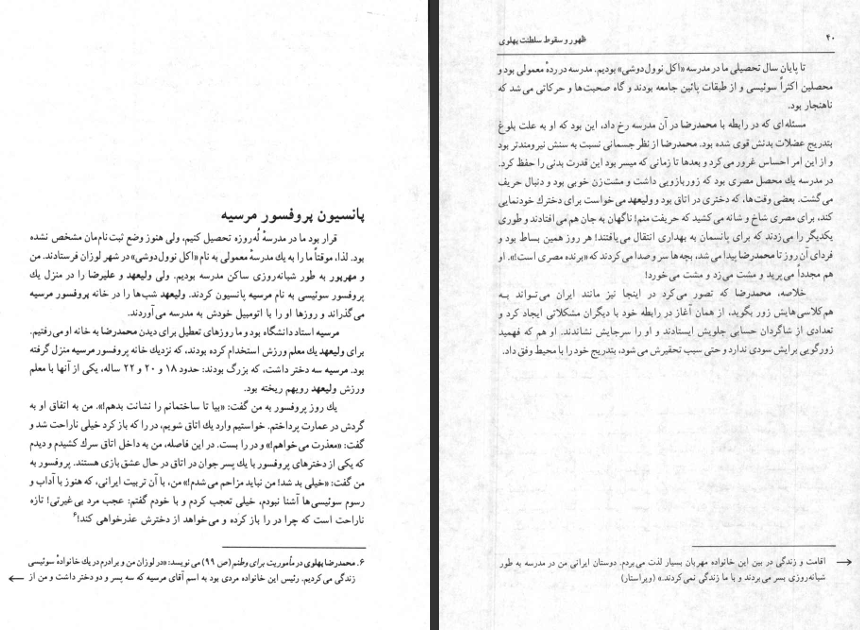 پانسیون پروفسور مرسیه
قرار بود ما در مدرسهٔ لُه‌روزه تحصیل کنیم، ولی هنوز وضع ثبت نام‌مان مشخص نشده
بود. لذا، موقتاً ما را به یك مدرسهٔ معمولی به نام «اکل نوول‌دوشی» در شهر لوزان فرستادند. من
و مهرپور به طور شبانه‌روزی ساکن مدرسه بودیم. ولی ولیعهد و علیرضا را در منزل یك
پروفسور سوئیسی به نام مرسیه پانسیون کردند. ولیعهد شب‌ها را در خانه پروفسور مرسیه
می‌گذراند و روزها او را با اتومبیل خودش به مدرسه می‌آوردند.
مرسیه استاد دانشگاه بود و ما روزهای تعطیل برای دیدن محمدرضا به خانه او می‌رفتیم.
برای ولیعهد یك معلم ورزش استخدام کرده بودند، که نزدیك خانه پروفسور مرسیه منزل گرفته
بود. مرسیه سه دختر داشت، که بزرگ بودند: حدود ۱۸ و ۲۰ و ۲۲ ساله، یکی از آنها با معلم
ورزش ولیعهد رویهم ریخته بود.
یك روز پروفسور به من گفت: «بیا تا ساختمانم را نشانت بدهم!». من به اتفاق او به
گردش در عمارت پرداختم. خواستیم وارد یك اتاق شویم، در را که باز کرد خیلی ناراحت شد و
گفت: «معذرت می‌خواهم!» و در را بست. در این فاصله، من به داخل اتاق سرك کشیدم و دیدم
که یکی از دخترهای پروفسور با یك پسر جوان در اتاق در حال عشق بازی هستند. پروفسور به
من گفت: «خیلی بد شد! من نباید مزاحم می‌شدم!» من، با آن تربیت ایرانی، که هنوز با آداب و
رسوم سوئیسی‌ها آشنا نبودم، خیلی تعجب کردم و با خودم گفتم: عجب مرد بی‌غیرتی! تازه
ناراحت است که چرا در را باز کرده و می‌خواهد از دخترش عذرخواهی کند!۶
۶. محمدرضا پهلوی در مأموریت برای وطنم (ص ۹۹) می‌نویسد: «در لوزان من و برادرم در یك خانوادهٔ سوئیسی
زندگی می‌کردیم. رئیس این خانواده مردی بود به اسم آقای مرسیه که سه پسر و دو دختر داشت و من از ←
۴۰ ظهور و سقوط سلطنت پهلوی
تا پایان سال تحصیلی ما در مدرسه «اکل نوول‌دوشی» بودیم. مدرسه در ردهٔ معمولی بود و
محصلین اکثراً سوئیسی و از طبقات پائین جامعه بودند و گاه صحبت‌ها و حرکاتی می‌شد که
ناهنجار بود.
مسئله‌ای که در رابطه با محمدرضا در آن مدرسه رخ داد، این بود که او به علت بلوغ
بتدریج عضلات بدنش قوی شده بود. محمدرضا از نظر جسمانی نسبت به سنش نیرومندتر بود
و از این امر احساس غرور می‌کرد و بعدها تا زمانی که میسر بود این قدرت بدنی را حفظ کرد.
در مدرسه یك محصل مصری بود که زوربازویی داشت و مشت‌زن خوبی بود و دنبال حریف
می‌گشت. بعضی وقت‌ها، که دختری در اتاق بود و ولیعهد می‌خواست برای دخترك خودنمایی
کند، برای مصری شاخ و شانه می‌کشید که حریفت منم! ناگهان به جان هم می‌افتادند و طوری
یکدیگر را می‌زدند که برای پانسمان به بهداری انتقال می‌یافتند! هر روز همین بساط بود و
فردای آن روز تا محمدرضا پیدا می‌شد، بچه‌ها سر و صدا می‌کردند که «برنده مصری است!». او
هم مجدداً می‌پرید و مشت می‌زد و مشت می‌خورد!
خلاصه، محمدرضا که تصور می‌کرد در اینجا نیز مانند ایران می‌تواند به
هم‌کلاسی‌هایش زور بگوید، از همان آغاز در رابطه خود با دیگران مشکلاتی ایجاد کرد و
تعدادی از شاگردان حسابی جلویش ایستادند و او را سرجایش نشاندند. او هم که فهمید
زورگویی برایش سودی ندارد و حتی سبب تحقیرش می‌شود، بتدریج خود را با محیط وفق داد.
→ اقامت و زندگی در بین این خانواده مهربان بسیار لذت می‌بردم. دوستان ایرانی من در مدرسه به طور
شبانه‌روزی بسر می‌بردند و با ما زندگی نمی‌کردند.» (ویراستار)